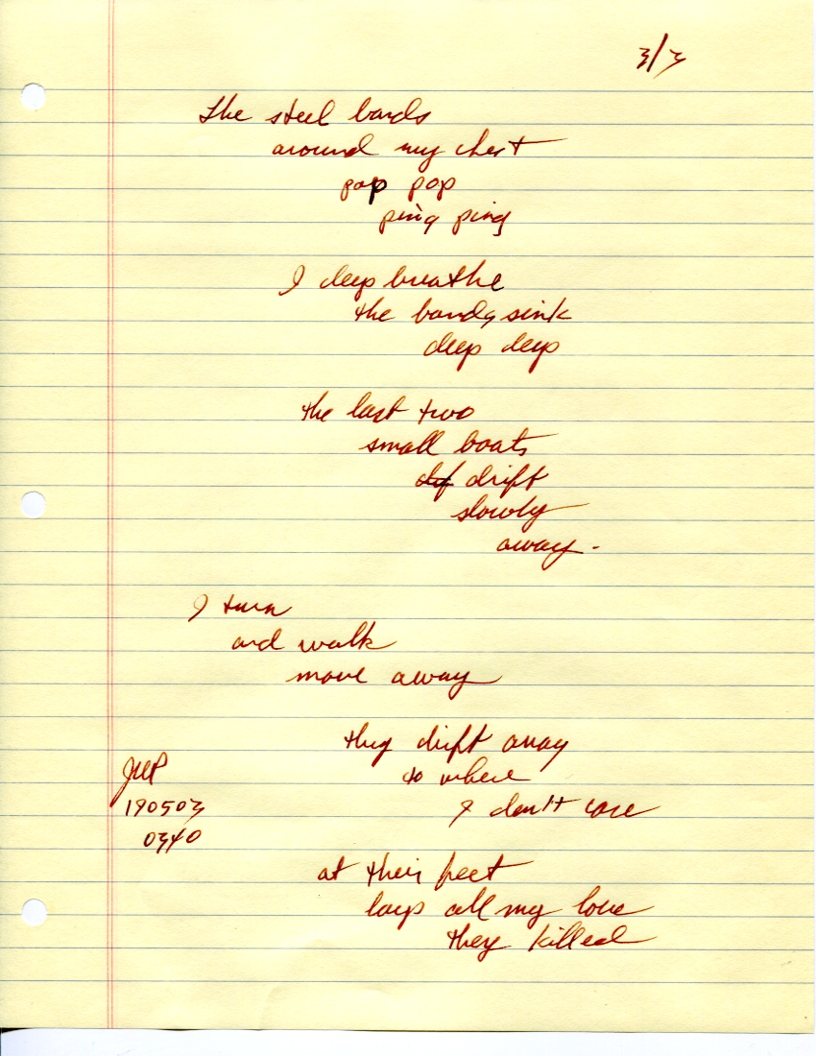 3/3
The steel bands
around my chest
pop pop
ping ping
I deep breathe
the bands sink
deep deep
the last two
small boats
drift
slowly
away.
I turn
and walk
move away
they drift away
to where
I don't care
at their feet
lays all my love
they killed
JWP
190503
0340